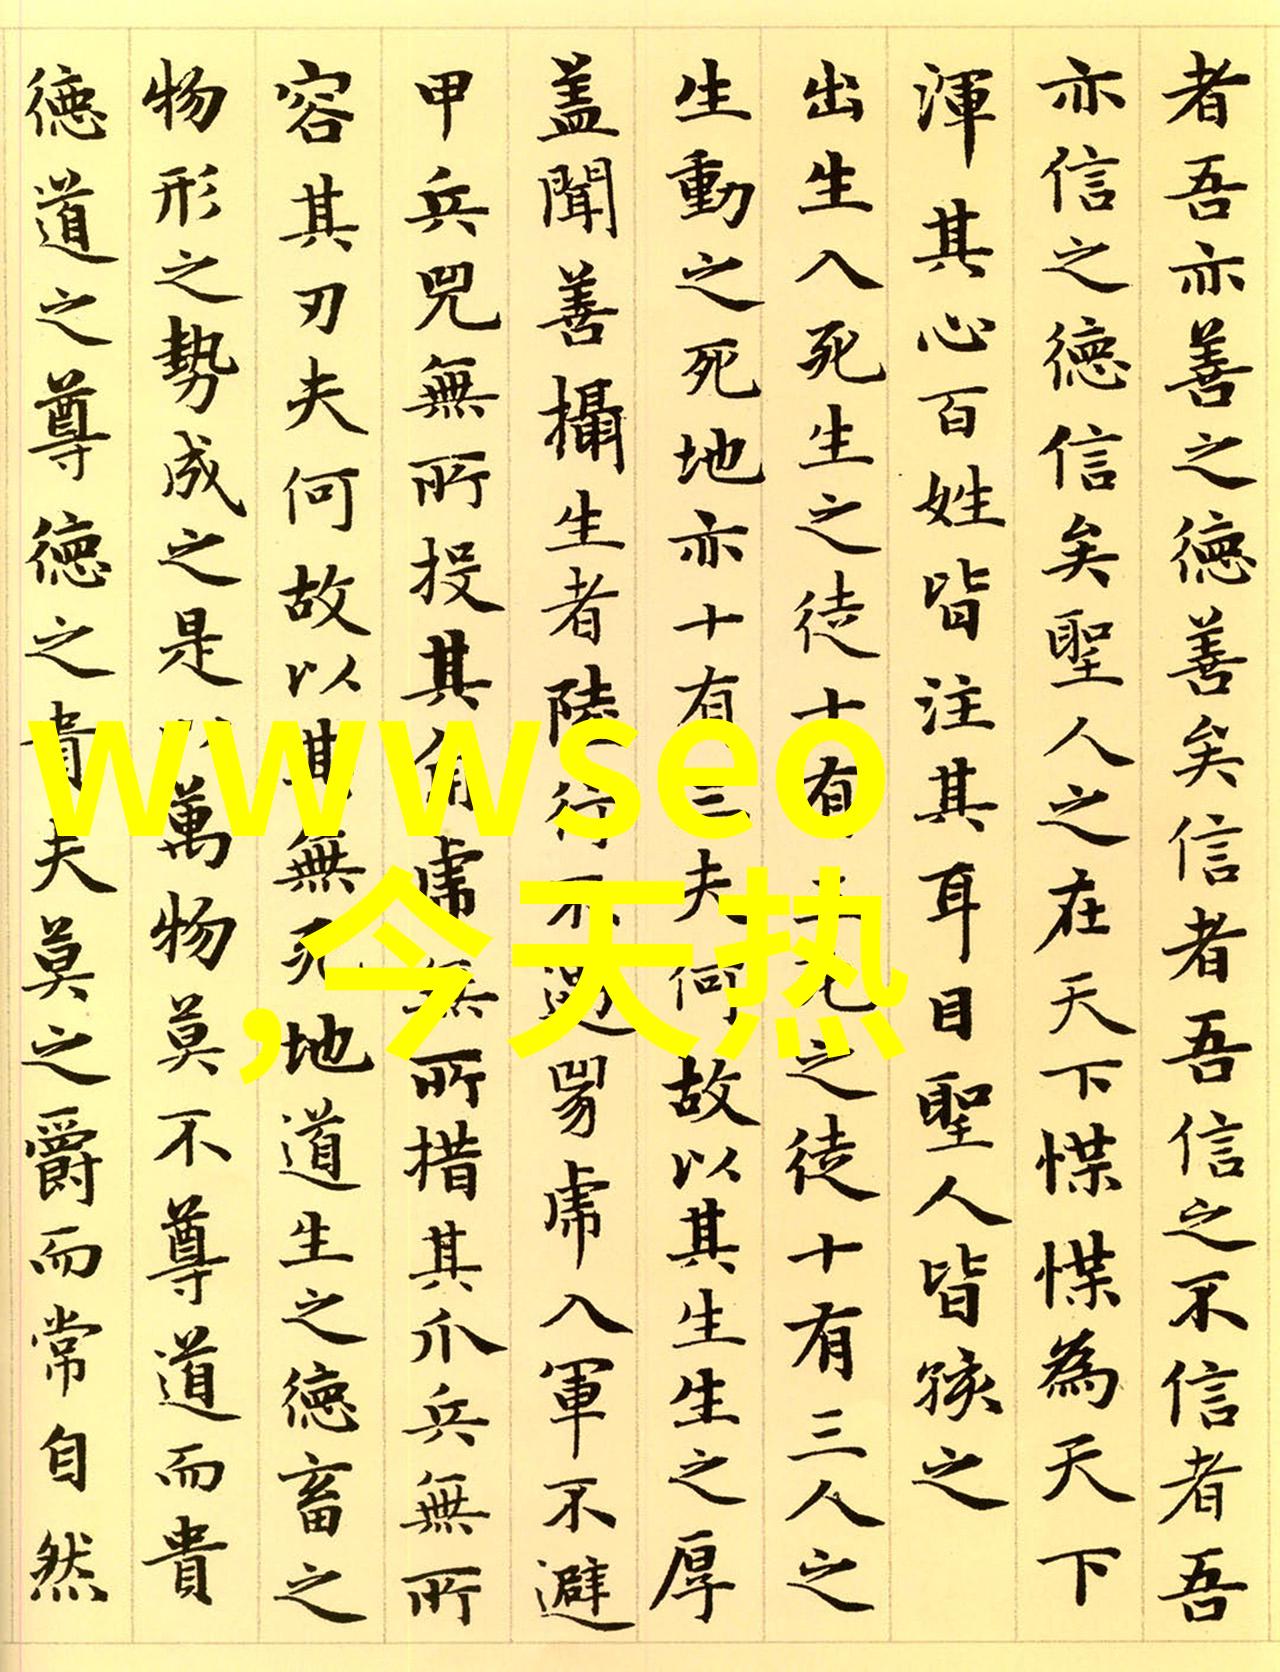 者吾亦善之德善矣信者吾信之不信者吾
亦信之德信矣聖人之在天下惵惵為天下
渾其心百姓皆注其耳目聖人皆孩之
出生入死生之徒十有三死之徒十有三人之
生動之死地亦十有三夫何故以其生生之厚
盖聞善攝生者陸行不遇兕虎入軍不避
甲兵兕無所投其角虎無所措其爪兵無所
容其刃夫何故以其無死地道生之德畜之
物形之勢成之是以萬物莫不尊道而貴
德道之尊德之貴夫莫之爵而常自然
wwwseo
,今天热